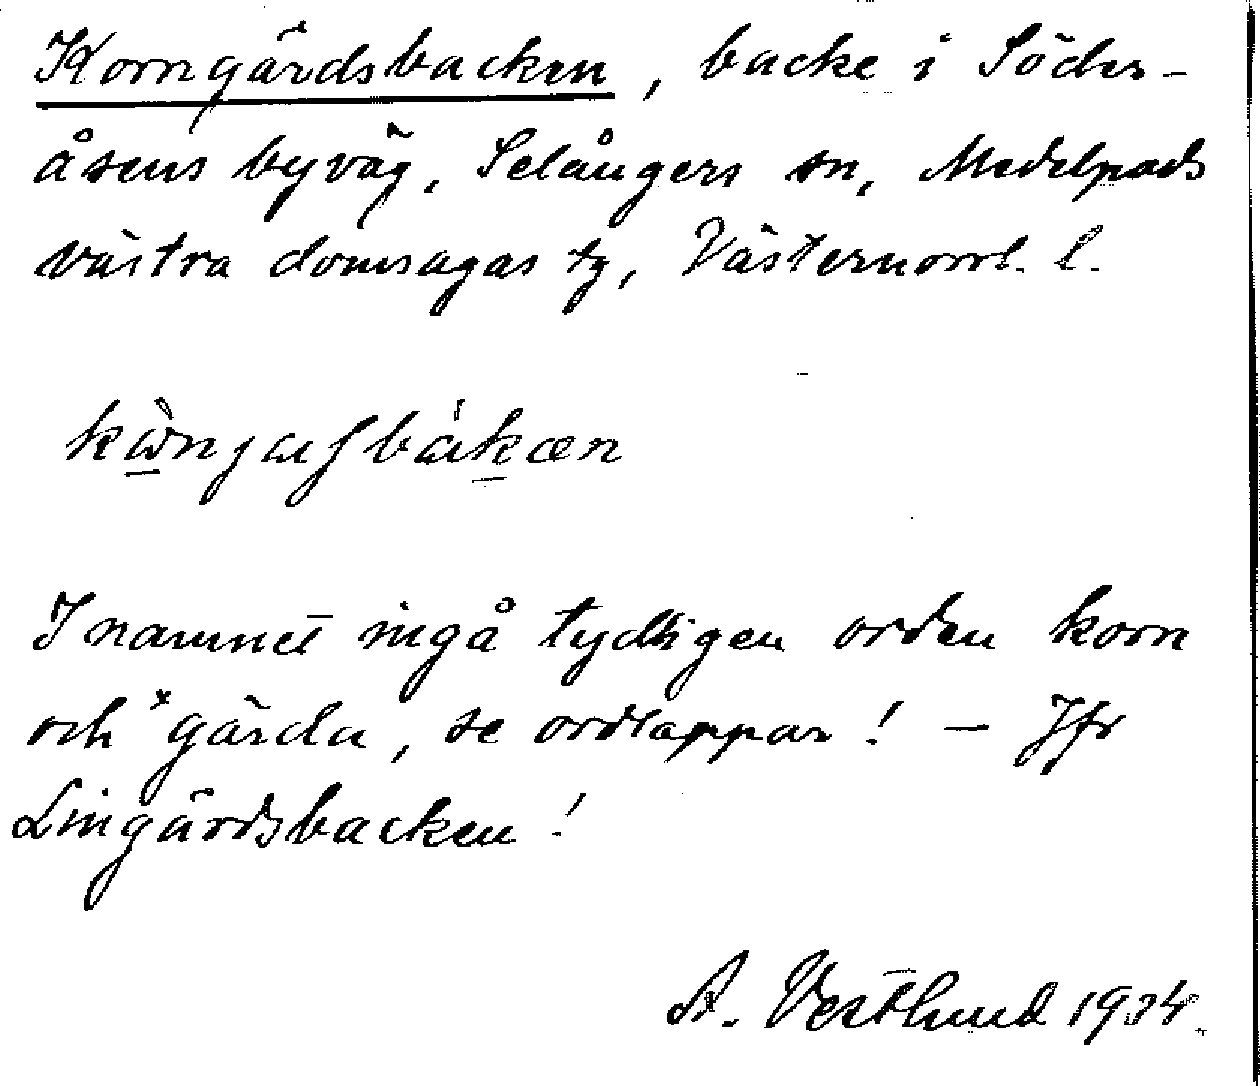 Korngärdsbacken, backe i Söder-
åsens byväg, Selångers sn, Medelpads
västra domsagas tg, Västernorrl. l.
I namnet ingå tydligen orden korn
och *gärda, se ordlappar! – Jfr
Lingärdsbacken!
A. Vestlund 1934.